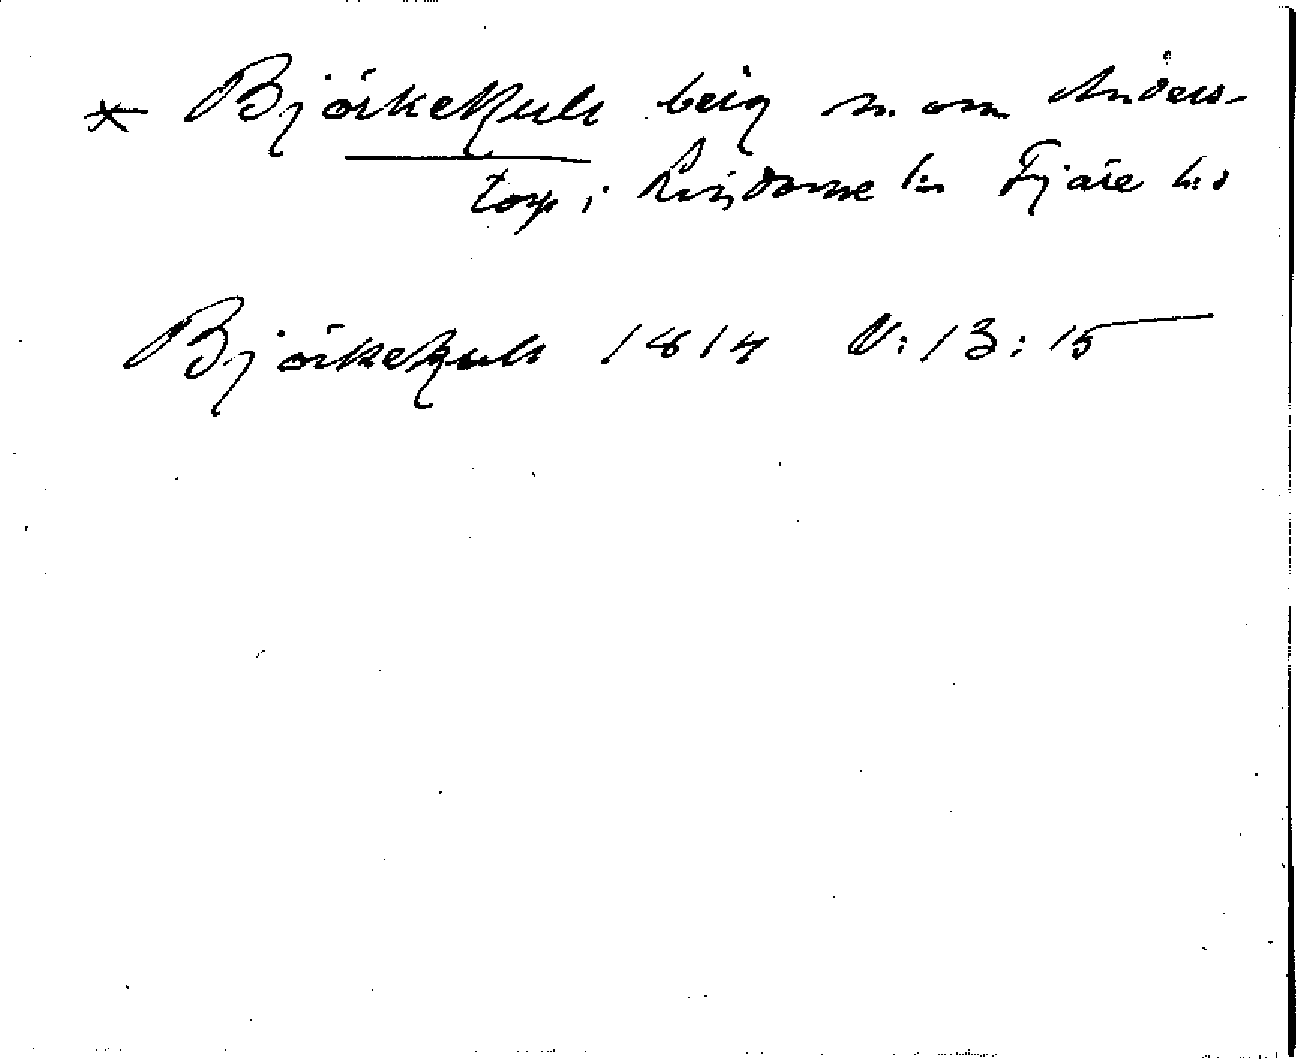 * Björkekull berg n. om Anders-
torp i Lindome sn Fjäre hd
Björkekull 1814 V:13:15